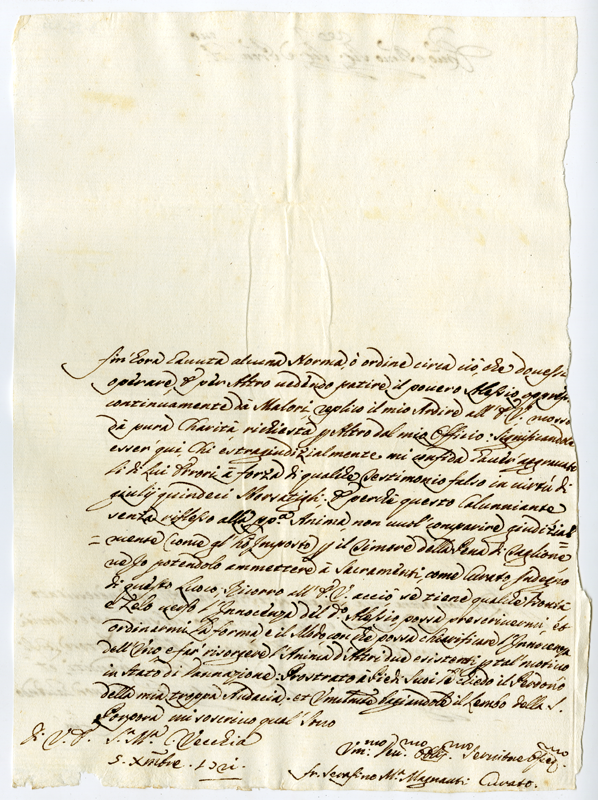 fin' hora hauuta alcuna Norma, ò ordine circa ciò che douessi
operare, & per Altro uedendo patire il pouero Alessio,
continuamente da Malori, replico il mio Ardire all'
da pura Charità, richiesta p Altro dal mio Officio: Significandole
esser' qui Chi estragiudizialmente mi confida hauer'
li di Lui Errori à forza di qualche Testimonio falso in uirtù di
giulij quindeci & perche questo Calunniante
senza riflesso alla pp.a Anima non uuol' comparire giudizial=
=mente, come gl' hò Imposto p il timore della Pena di Taglione
ne Io potendolo ammettere à Sacramenti, come Curato Indegno
di questo Luoco, Ricorro all' acciò se tiene qualche Bontà
e Zelo uerso l'Innocenza del d.o Alessio possa prescriuermi, et
ordinarmi La forma e il Modo con che possa chiarificare l'Innocenza
dell' Uno e far' risorgere l'Anima d'Altri due esistenti p tal motiuo
in Stato di Dannazione: Prostrato à Piedi Suoi Le Chiedo il Perdono
della mia troppa Audacia. et humilm.te bagiandole il Lembo della S.
Porpora mi soscriuo qual' Sono
S.ta M.a Vecchia
5. Xmbre.
Vm.mo Seru.mo Seruitore
fr. Serafino M.a Magnauti Curato.